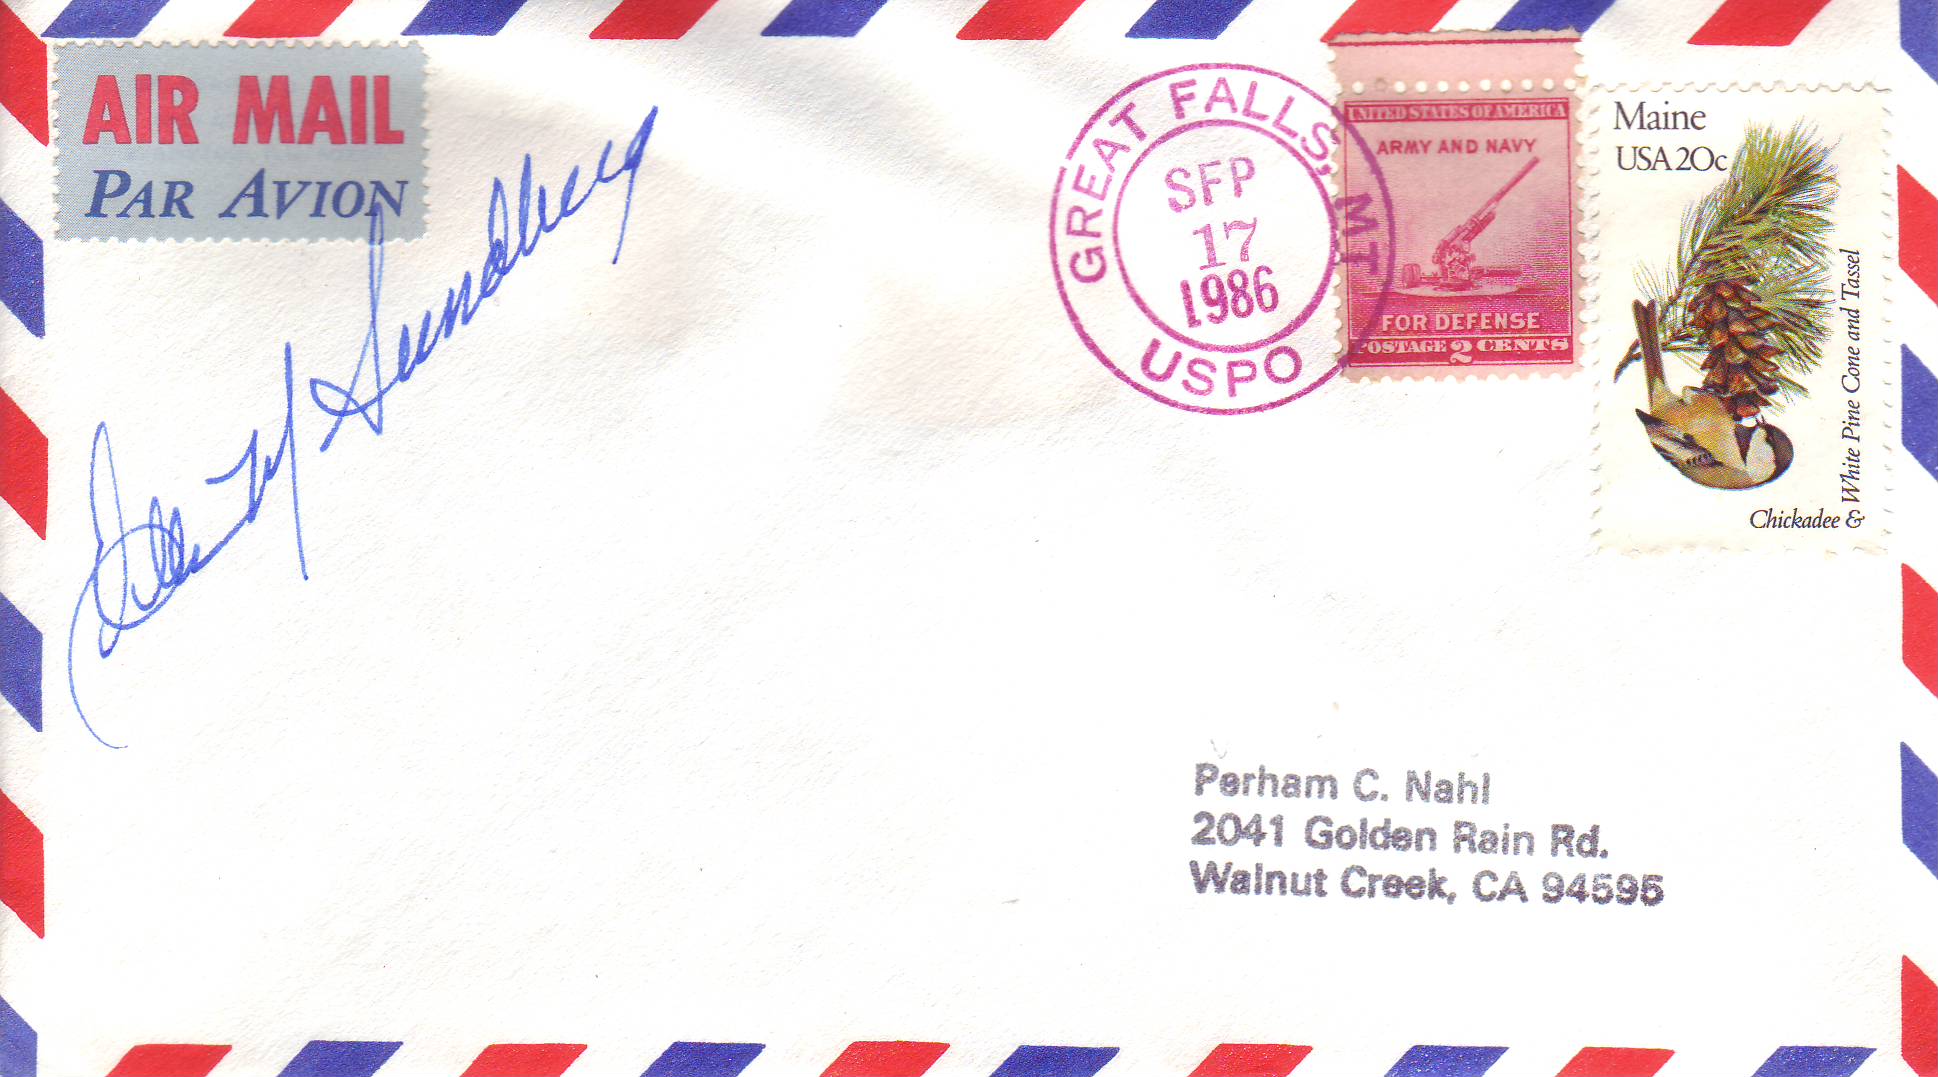 AIR MAIL
PAR AVION
Sundberg
GREAT FALLS, MT
SEP
17
1986
USPO
UNITED STATES OF AMERICA
ARMY AND NAVY
FOR DEFENSE
POSTAGE 2 CENTS
Maine
USA 20c
Chickadee &
White Pine Cone and Tassel
Perham C. Nahl
2041 Golden Rain Rd.
Walnut Creek, CA 94595